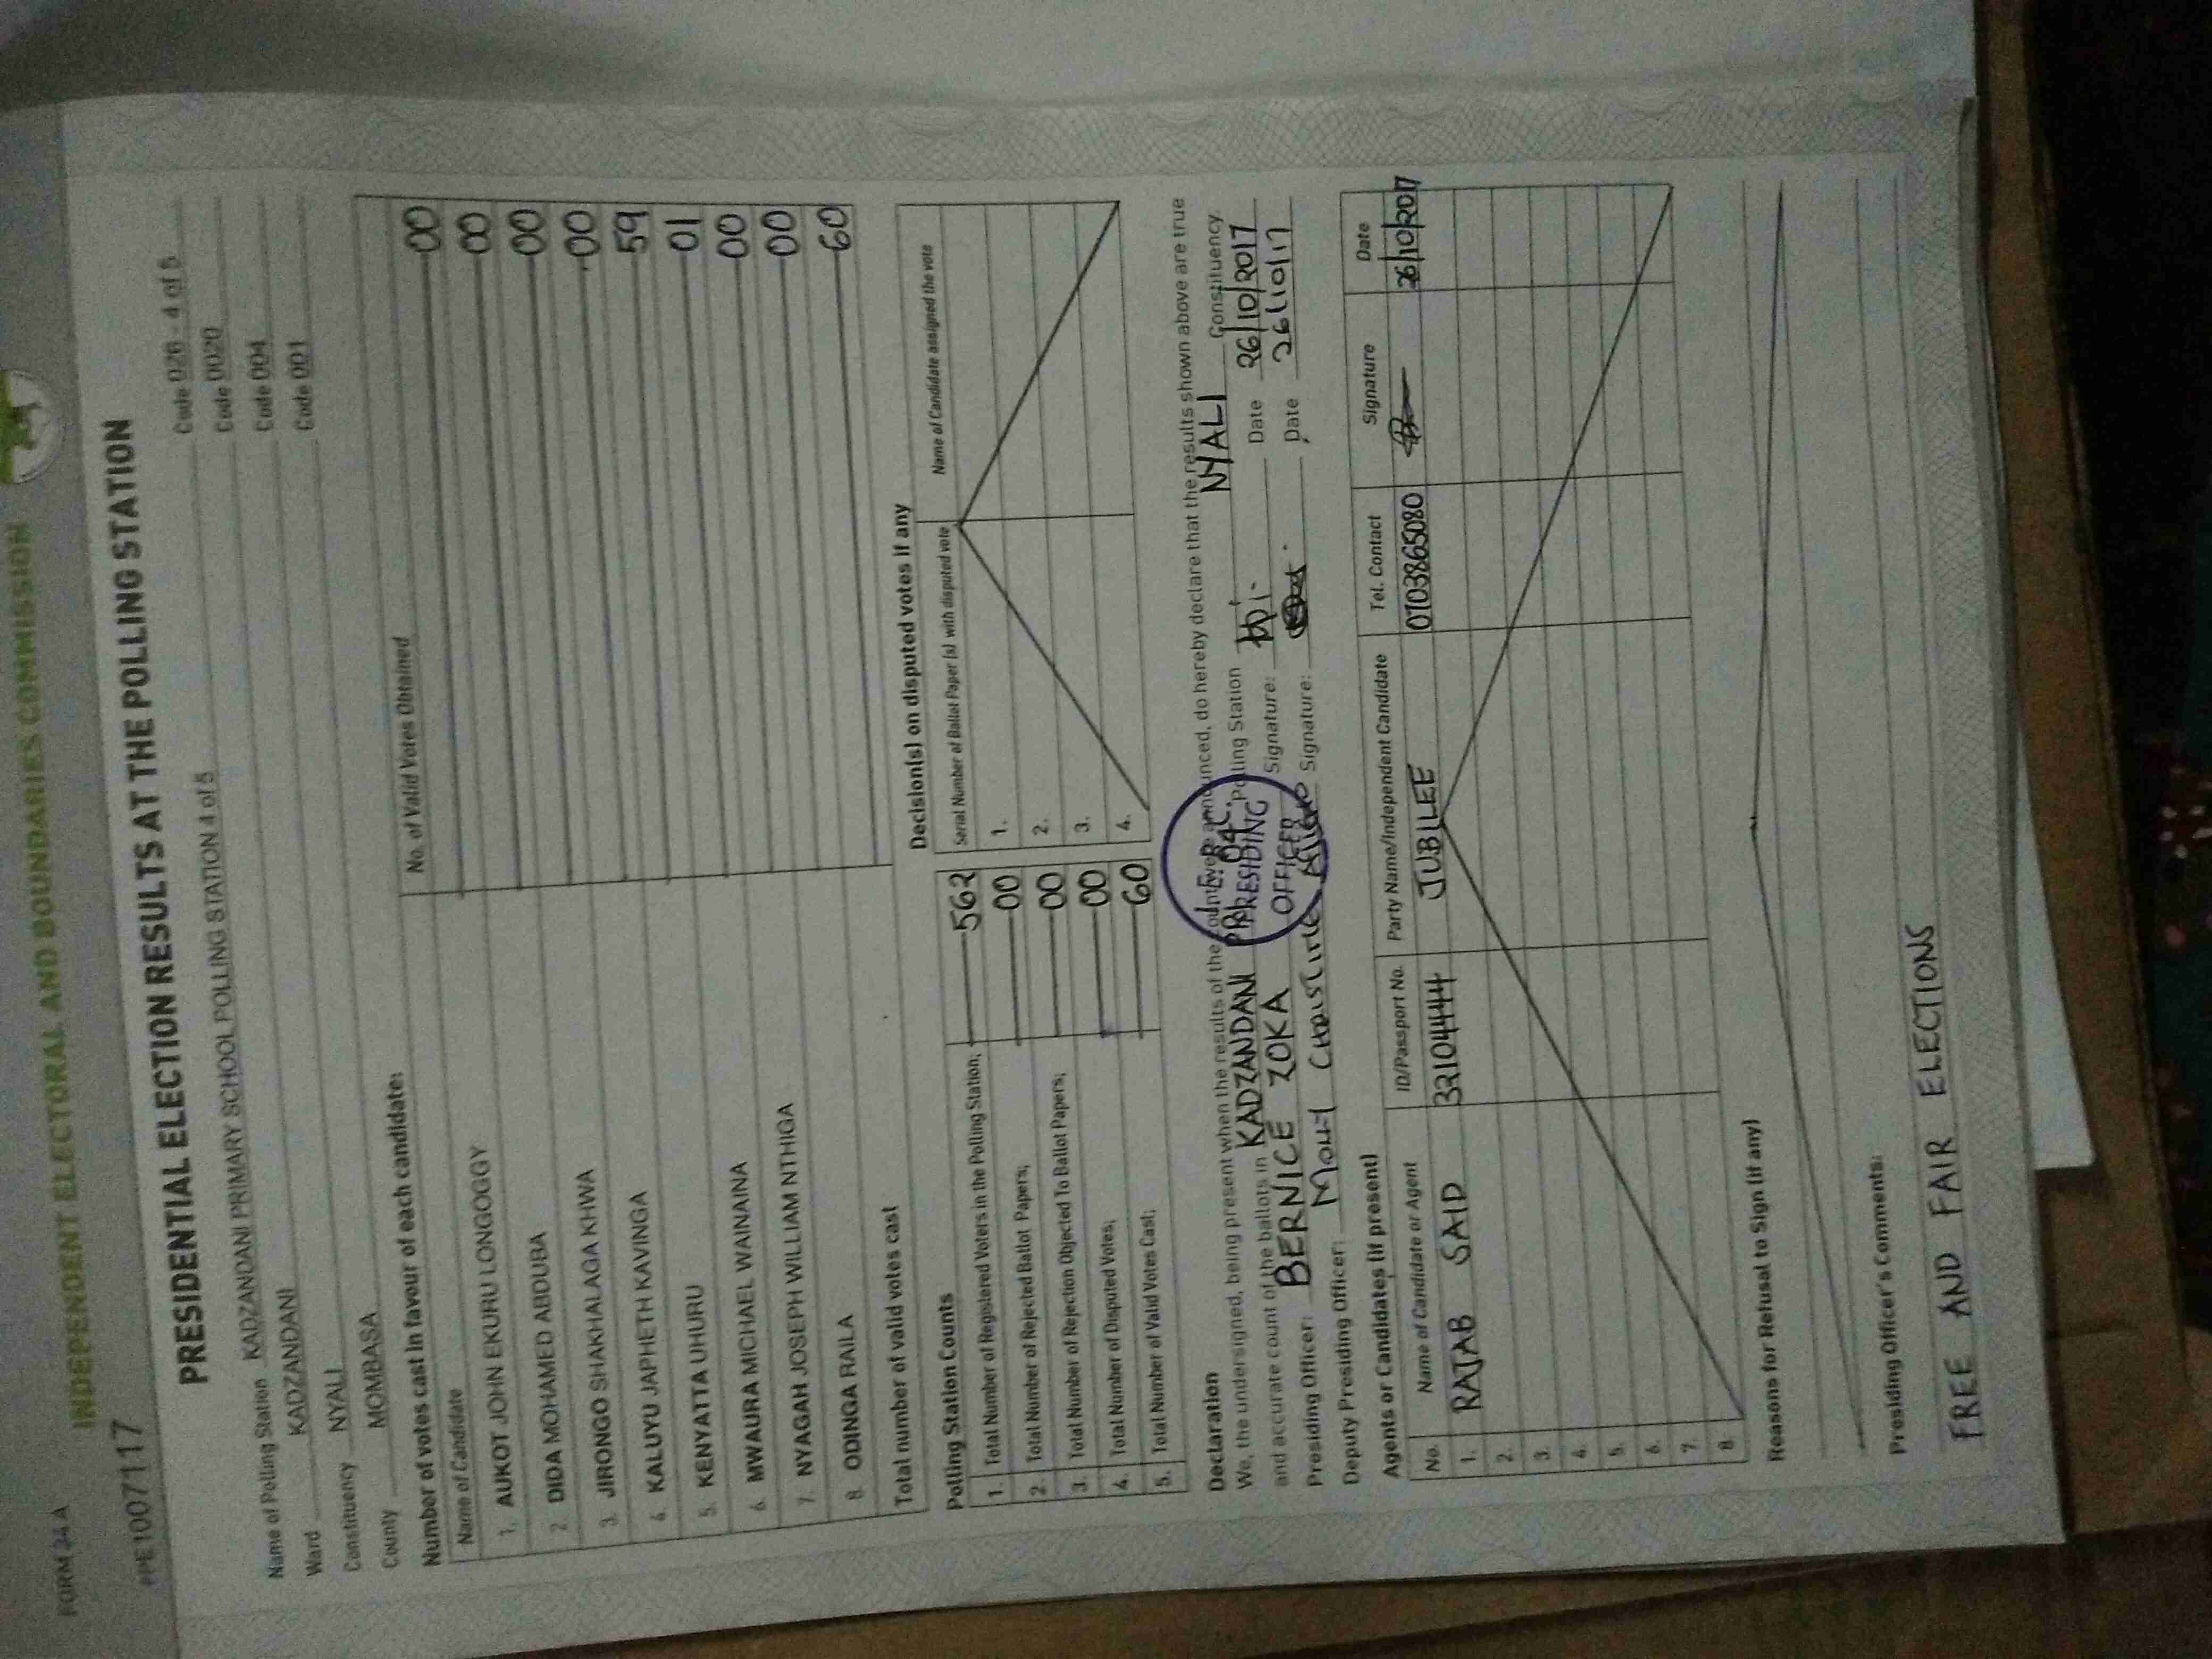 FORM 34 A
INDEPENDENT ELECTORAL AND BOUNDARIES COMMISSION
PRE1007117
PRESIDENTIAL ELECTION RESULTS AT THE POLLING STATION
Name of Polling Station KADZANDANI PRIMARY SCHOOL POLLING STATION 4 of 5 Code 026 - 4 of 5
Ward KADZANDANI Code 0020
Constituency NYALI Code 004
County MOMBASA Code 001
Number of votes cast in favour of each candidate:
Name of Candidate No. of Valid Votes Obtained
1. AUKOT JOHN EKURU LONGOGGY 00
2. DIDA MOHAMED ABDUBA 00
3. JIRONGO SHAKHALAGA KHWA 00
4. KALUYU JAPHETH KAVINGA 00
5. KENYATTA UHURU 59
6. MWAURA MICHAEL WAINAINA 01
7. NYAGAH JOSEPH WILLIAM NTHIGA 00
8. ODINGA RAILA 00
Total number of valid votes cast 60
Polling Station Counts
1. Total Number of Registered Voters in the Polling Station; 562
2. Total Number of Rejected Ballot Papers; 00
3. Total Number of Rejection Objected To Ballot Papers; 00
4. Total Number of Disputed Votes; 00
5. Total Number of Valid Votes Cast; 60
Decision(s) on disputed votes if any
Serial Number of Ballot Paper (s) with disputed vote Name of Candidate assigned the vote
1.
2.
3.
4.
Declaration
We, the undersigned, being present when the results of the count were announced, do hereby declare that the results shown above are true
and accurate count of the ballots in KADZANDANI PRI Polling Station NYALI Constituency.
Presiding Officer: BERNICE ZOKA Signature: Date 26/10/2017
Deputy Presiding Officer: CHRISTINE Signature: Date 26/10/17
PRESIDING
OFFICER
Agents or Candidates (if present)
No. Name of Candidate or Agent ID/Passport No. Party Name/Independent Candidate Tel. Contact Signature Date
1. RAJAB SAID 32104444 JUBILEE 0703865080 26/10/2017
2.
3.
4.
5.
6.
7.
8.
Reasons for Refusal to Sign (if any)
Presiding Officer's Comments:
FREE AND FAIR ELECTIONS